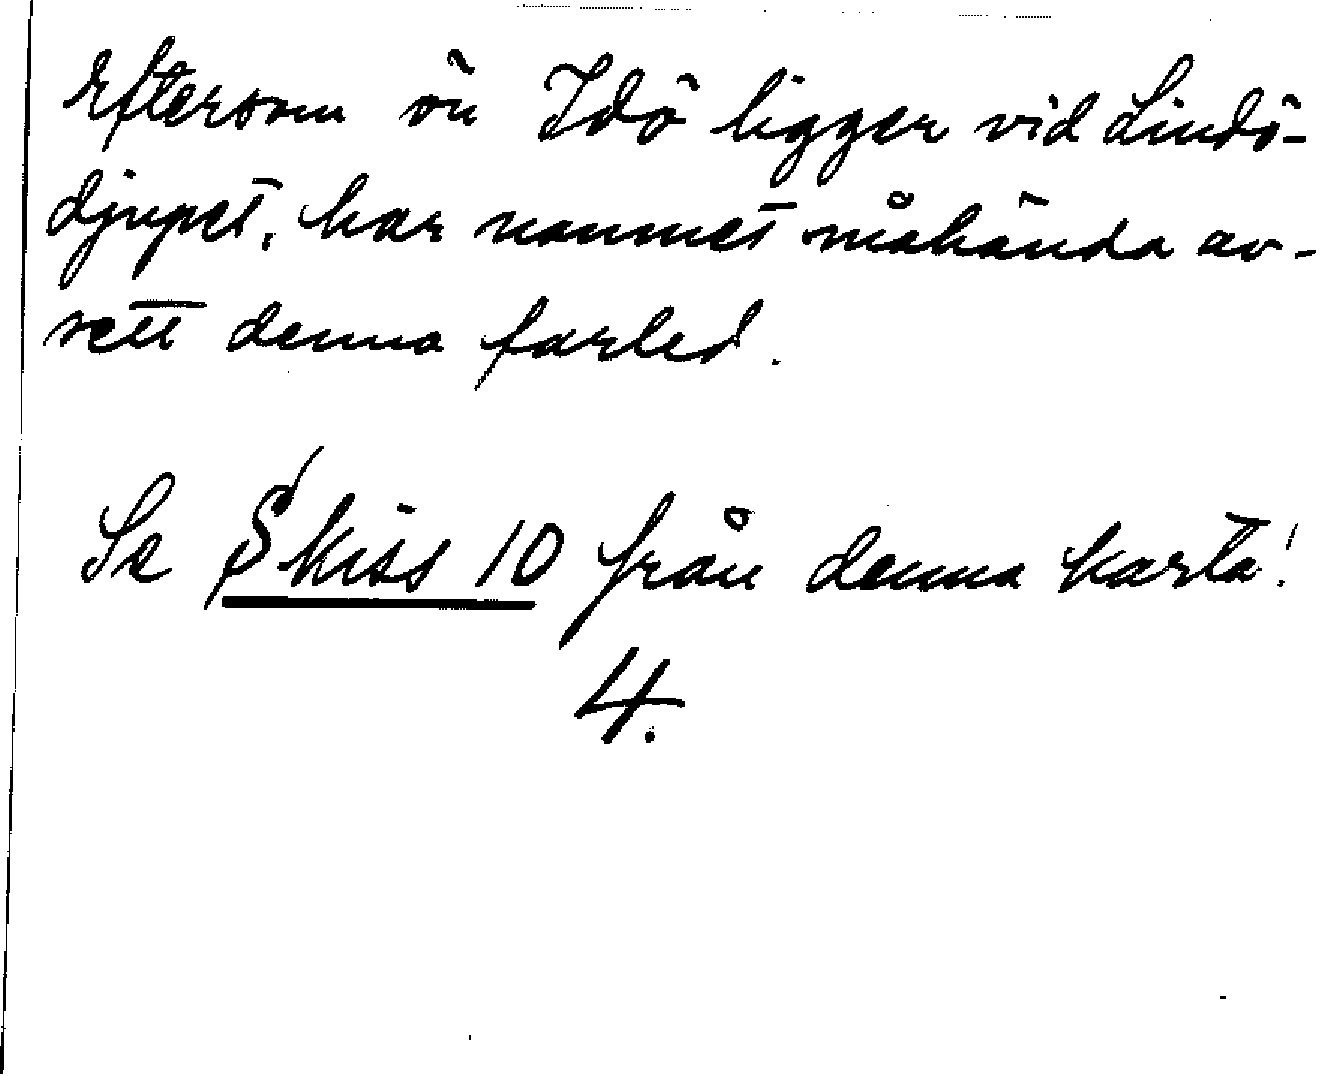 Eftersom ön Idö ligger vid Lindö-
djupet, har namnet måhända av-
sett denna farled.
Se Skiss 10 från denna karta!
4.